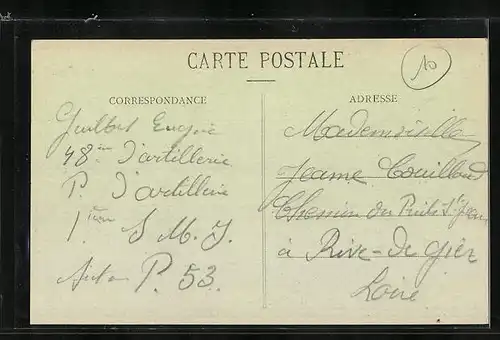 CARTE POSTALE
10
CORRESPONDANCE
Guilbot Eugène
48ème d'artillerie
P. d'artillerie
1ère S. M. I.
P. 53.
ADRESSE
Mademoiselle
Jeanne
Chemin du Puits St Jean
à Rive-de-Gier
Loire